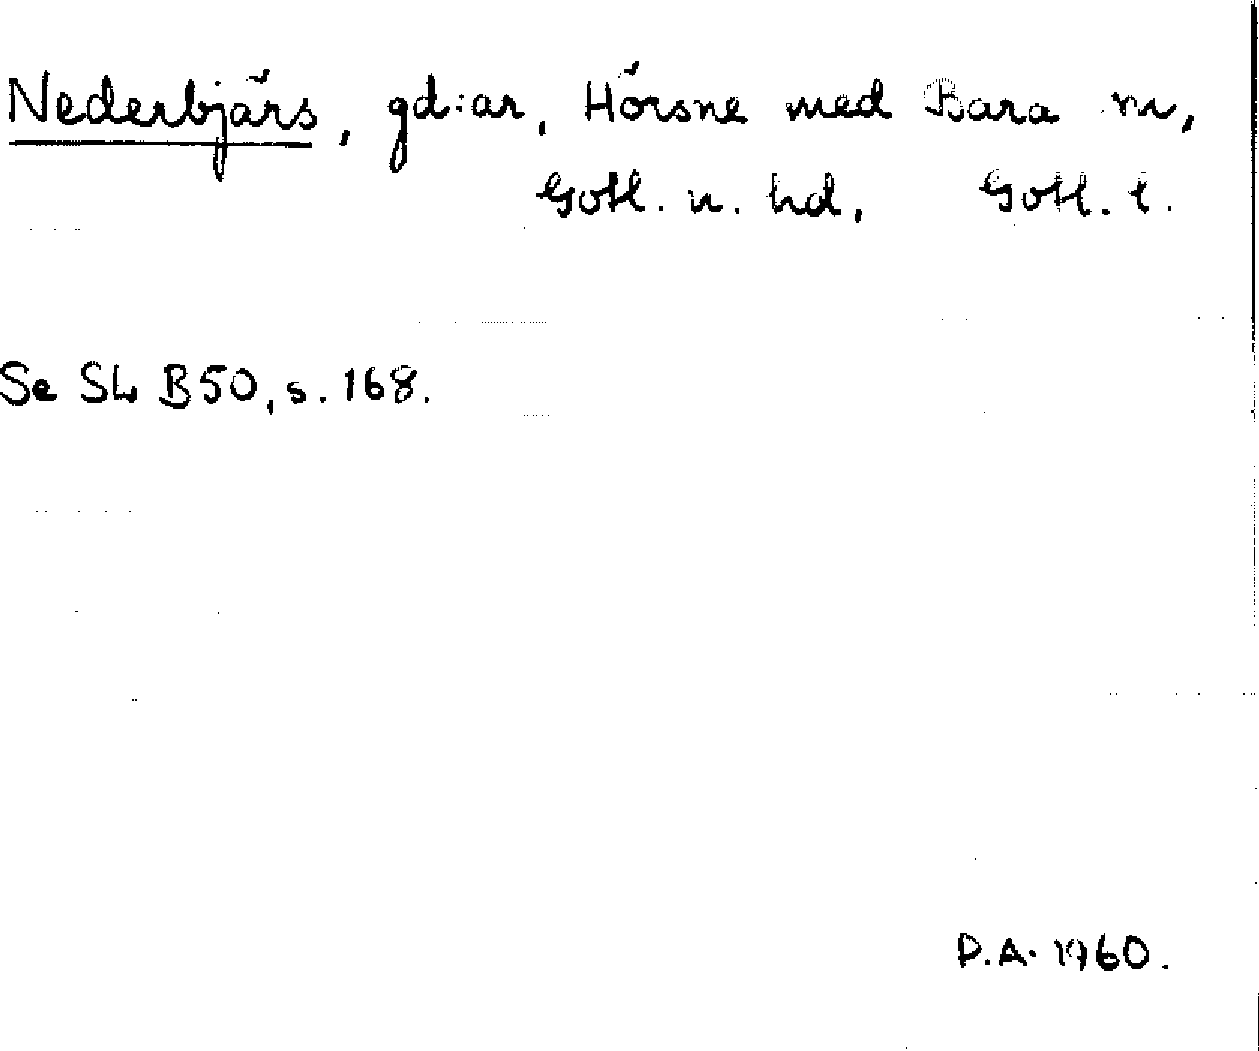 Nederbjärs, gd:ar, Hörsne med Bara sn,
Gotl. n. hd, Gotl. l.
Se SL B50, s. 168.
P.A. 1960.